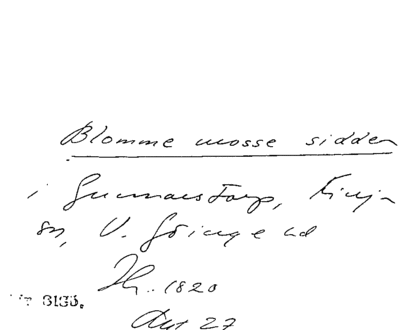 Blomme mosse sidden
i Gunnarstorp, Finja
sn, V. Göinge hd
Ht. 1820
Akt 27